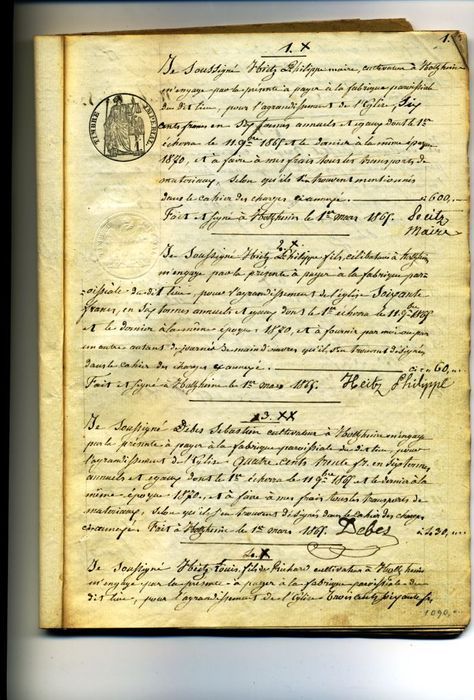 1. X
1.
TIMBRE IMPÉRIAL
Je soussigné Heitz Philippe maire, cultivateur à Holtzheim
m'engage par la présente à payer à la fabrique paroissiale
du dit lieu, pour l'agrandissement de l'Eglise, Six
cents francs en Six sommes annuels et egaux dont le 1er
échera le 11 9bre 1865 et le dernier à la même époque
1870, et à faire à mes frais tous les transports de
materiaux, selon qu'ils se trouvent mentionnés
dans le cahier des charges ci annexé. ci 600,
Fait et signé à Holtzheim le 1er mars 1865. Heitz
Maire
2. X
Je Soussigné Heitz Philippe fils, célibataire à Holtzheim
m'engage par la presente à payer à la fabrique par-
oissiale du dit lieu, pour l'agrandissement de l'église Soixante
francs, en Six sommes annuels et egaux dont le 1er échera le 11 9bre 1865
et le dernier à la même époque 1870, et à fournir par moi ou par
un autre autant de journées de main d'œuvres qu'il s'en trouvent designés
dans le cahier des charges ci annexé. ci 60,
Fait et signé à Holtzheim le 1er mars 1865. Heitz Philippe
3. XX
Je soussigné Debes Sebastien cultivateur à Holtzheim m'engage
par la présente à payer à la fabrique paroissiale du dit lieu, pour
l'agrandissement de l'Eglise quatre cents trente fr. en Six sommes
annuels et egaux dont le 1er échera le 11 9bre 1865 et le dernier à la
même époque 1870, et à faire à mes frais tous les transports de
materiaux, selon qu'il s'en trouvent designés dans le cahier des charges
ci annexé. Fait à Holtzheim le 1er mars 1865. Debes ci 430,
4. X
Je Soussigné Heitz Louis, fils de Richard cultivateur à Holtzheim
m'engage par la présente à payer à la fabrique paroissiale du
dit lieu, pour l'agrandissement de l'Eglise trois cents soixante fr
1090,